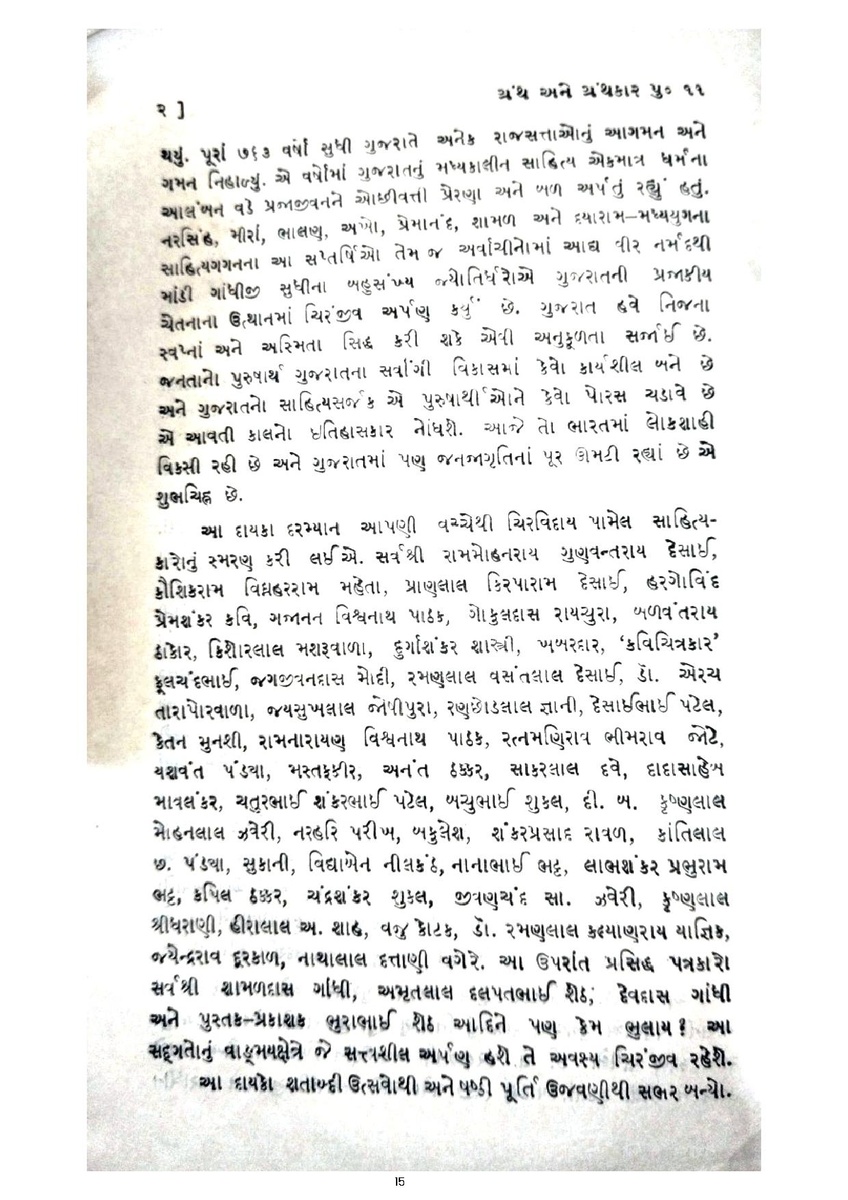 ગ્રંથ અને ગ્રંથકાર પુ૦ ૧૧
૨ ]
થયું. પૂરાં ૭૬૩ વર્ષો સુધી ગુજરાતે અનેક રાજસત્તાઓનું આગમન અને
ગમન નિહાળ્યું. એ વર્ષોમાં ગુજરાતનું મધ્યકાલીન સાહિત્ય એકમાત્ર ધર્મના
આલંબન વડે પ્રજાજીવનને ઓછીવત્તી પ્રેરણા અને બળ અર્પતું રહ્યું હતું.
નરસિંહ, મીરાં, ભાલણ, અખો, પ્રેમાનંદ, શામળ અને દયારામ–મધ્યયુગના
સાહિત્યગગનના આ સપ્તર્ષિઓ તેમ જ અર્વાચીનોમાં આદ્ય વીર નર્મદથી
માંડી ગાંધીજી સુધીના બહુસંખ્ય જ્યોતિર્ધરોએ ગુજરાતની પ્રજાકીય
ચેતનાના ઉત્થાનમાં ચિરંજીવ અર્પણ કર્યું છે. ગુજરાત હવે નિજના
સ્વપ્નાં અને અસ્મિતા સિદ્ધ કરી શકે એવી અનુકૂળતા સર્જાઈ છે.
જનતાનો પુરુષાર્થ ગુજરાતના સર્વાંગી વિકાસમાં કેવો કાર્યશીલ બને છે
અને ગુજરાતનો સાહિત્યસર્જક એ પુરુષાર્થીઓને કેવો પોરસ ચડાવે છે
એ આવતી કાલનો ઇતિહાસકાર નોંધશે. આજે તો ભારતમાં લોકશાહી
વિકસી રહી છે અને ગુજરાતમાં પણ જનજાગૃતિનાં પૂર ઊમટી રહ્યાં છે એ
શુભચિહ્ન છે.
આ દાયકા દરમ્યાન આપણી વચ્ચેથી ચિરવિદાય પામેલ સાહિત્ય-
કારોનું સ્મરણ કરી લઈએ. સર્વશ્રી રામમોહનરાય ગુણવન્તરાય દેસાઈ,
કૌશિકરામ વિઘ્નહરરામ મહેતા, પ્રાણલાલ કિરપારામ દેસાઈ, હરગોવિંદ
પ્રેમશંકર કવિ, ગજાનન વિશ્વનાથ પાઠક, ગોકુલદાસ રાયચુરા, બળવંતરાય
ઠાકોર, કિશોરલાલ મશરૂવાળા, દુર્ગાશંકર શાસ્ત્રી, ખબરદાર, ‘કવિચિત્રકાર’
ફૂલચંદભાઈ, જગજીવનદાસ મોદી, રમણલાલ વસંતલાલ દેસાઈ, ડૉ. એરચ
તારાપોરવાળા, જયસુખલાલ જોષીપુરા, રણછોડલાલ જ્ઞાની, દેસાઈભાઈ પટેલ,
કેતન મુનશી, રામનારાયણ વિશ્વનાથ પાઠક, રત્નમણિરાવ ભીમરાવ જોટે,
યશવંત પંડ્યા, મસ્તફકીર, અનંત ઠક્કર, સાકરલાલ દવે, દાદાસાહેબ
માવલંકર, ચતુરભાઈ શંકરભાઈ પટેલ, બચુભાઈ શુક્લ, દી. બ. કૃષ્ણલાલ
મોહનલાલ ઝવેરી, નરહરિ પરીખ, બકુલેશ, શંકરપ્રસાદ રાવળ, કાંતિલાલ
છ. પંડ્યા, સુકાની, વિદ્યાબેન નીલકંઠ, નાનાભાઈ ભટ્ટ, લાભશંકર પ્રભુરામ
ભટ્ટ, કપિલ ઠક્કર, ચંદ્રશંકર શુક્લ, જીવણચંદ સા. ઝવેરી, કૃષ્ણલાલ
શ્રીધરાણી, હીરાલાલ અ. શાહ, વજુ કોટક, ડૉ. રમણલાલ કલ્યાણરાય યાજ્ઞિક,
જયેન્દ્રરાવ દૂરકાળ, નાથાલાલ દત્તાણી વગેરે. આ ઉપરાંત પ્રસિદ્ધ પત્રકારો
સર્વશ્રી શામળદાસ ગાંધી, અમૃતલાલ દલપતભાઈ શેઠ, દેવદાસ ગાંધી
અને પુસ્તક–પ્રકાશક ભુરાભાઈ શેઠ આદિને પણ કેમ ભુલાય? આ
સદ્ગતોનું વાઙ્મયક્ષેત્રે જે સત્ત્વશીલ અર્પણ હશે તે અવશ્ય ચિરંજીવ રહેશે.
આ દાયકો શતાબ્દી ઉત્સવોથી અને ષષ્ઠી પૂર્તિ ઉજવણીથી સભર બન્યો.
15